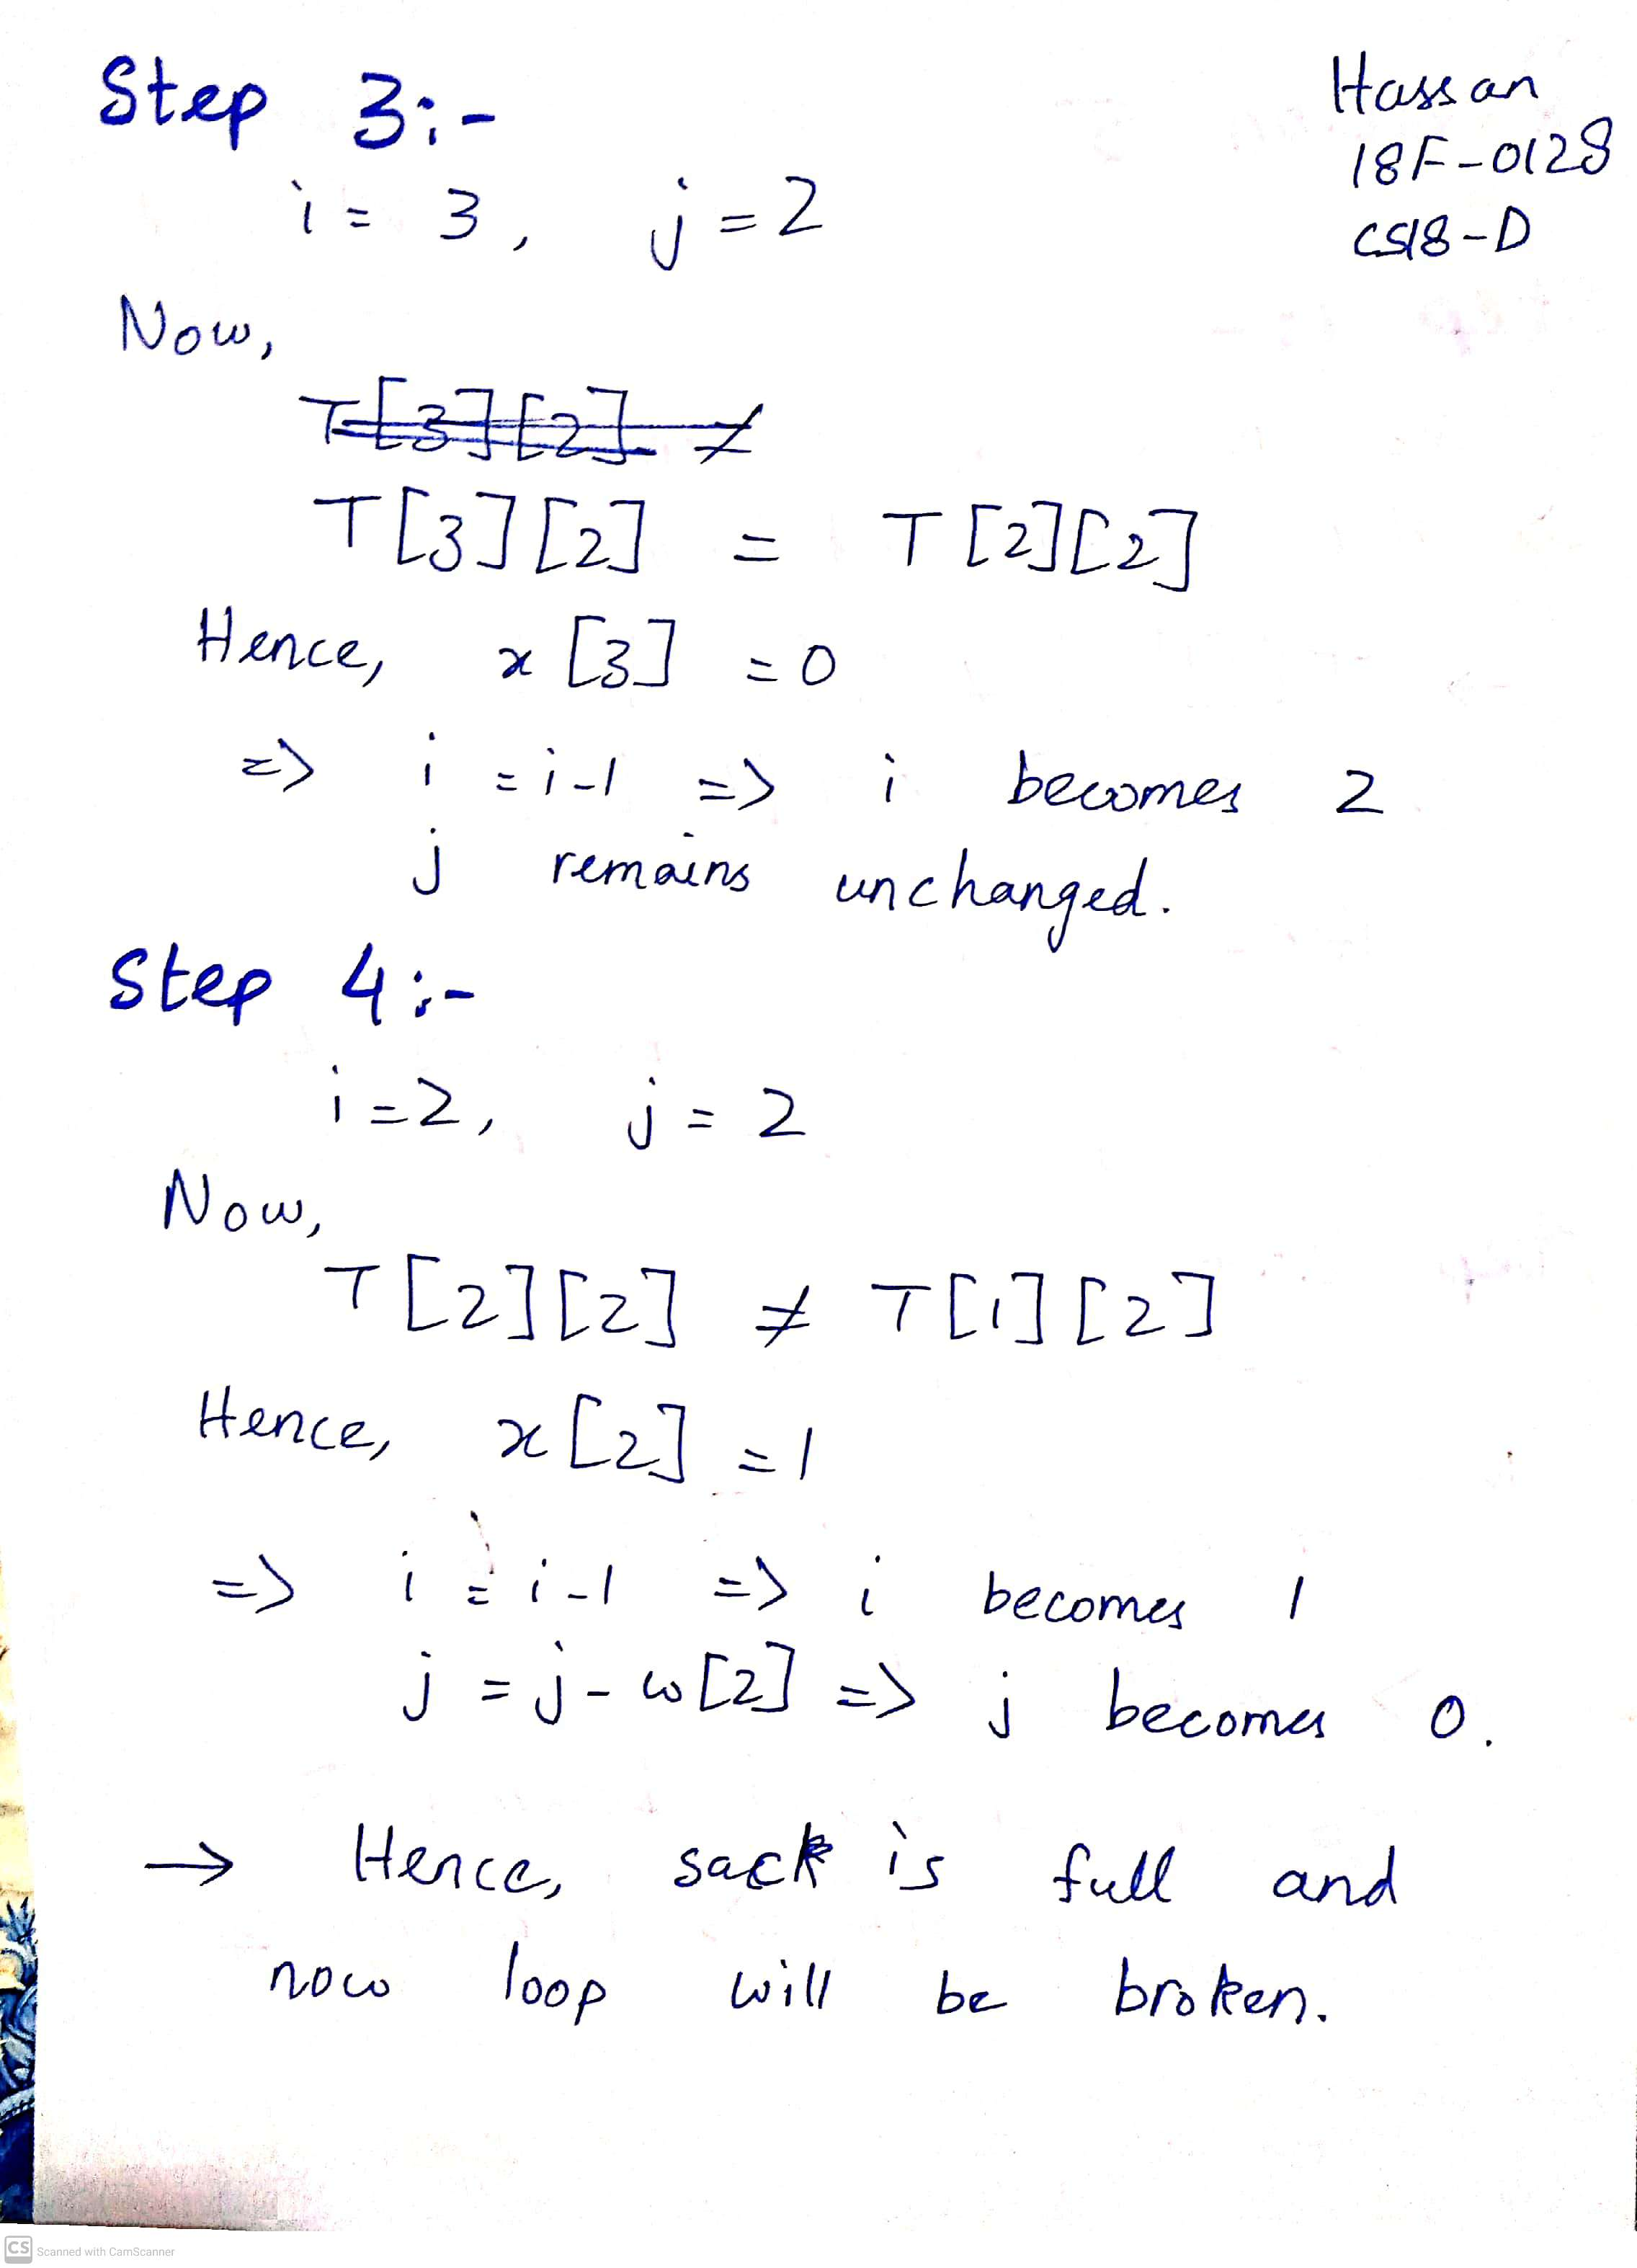 Step 3:-
Hassan
18F-0128
CS18-D
i = 3, j = 2
Now,
T[3][2] ≠
T[3][2] = T[2][2]
Hence, x[3] = 0
=> i = i-1 => i becomes 2
j remains unchanged.
Step 4:-
i = 2, j = 2
Now,
T[2][2] ≠ T[1][2]
Hence, x[2] = 1
=> i = i-1 => i becomes 1
j = j - w[2] => j becomes 0.
→ Hence, sack is full and
now loop will be broken.
CS Scanned with CamScanner